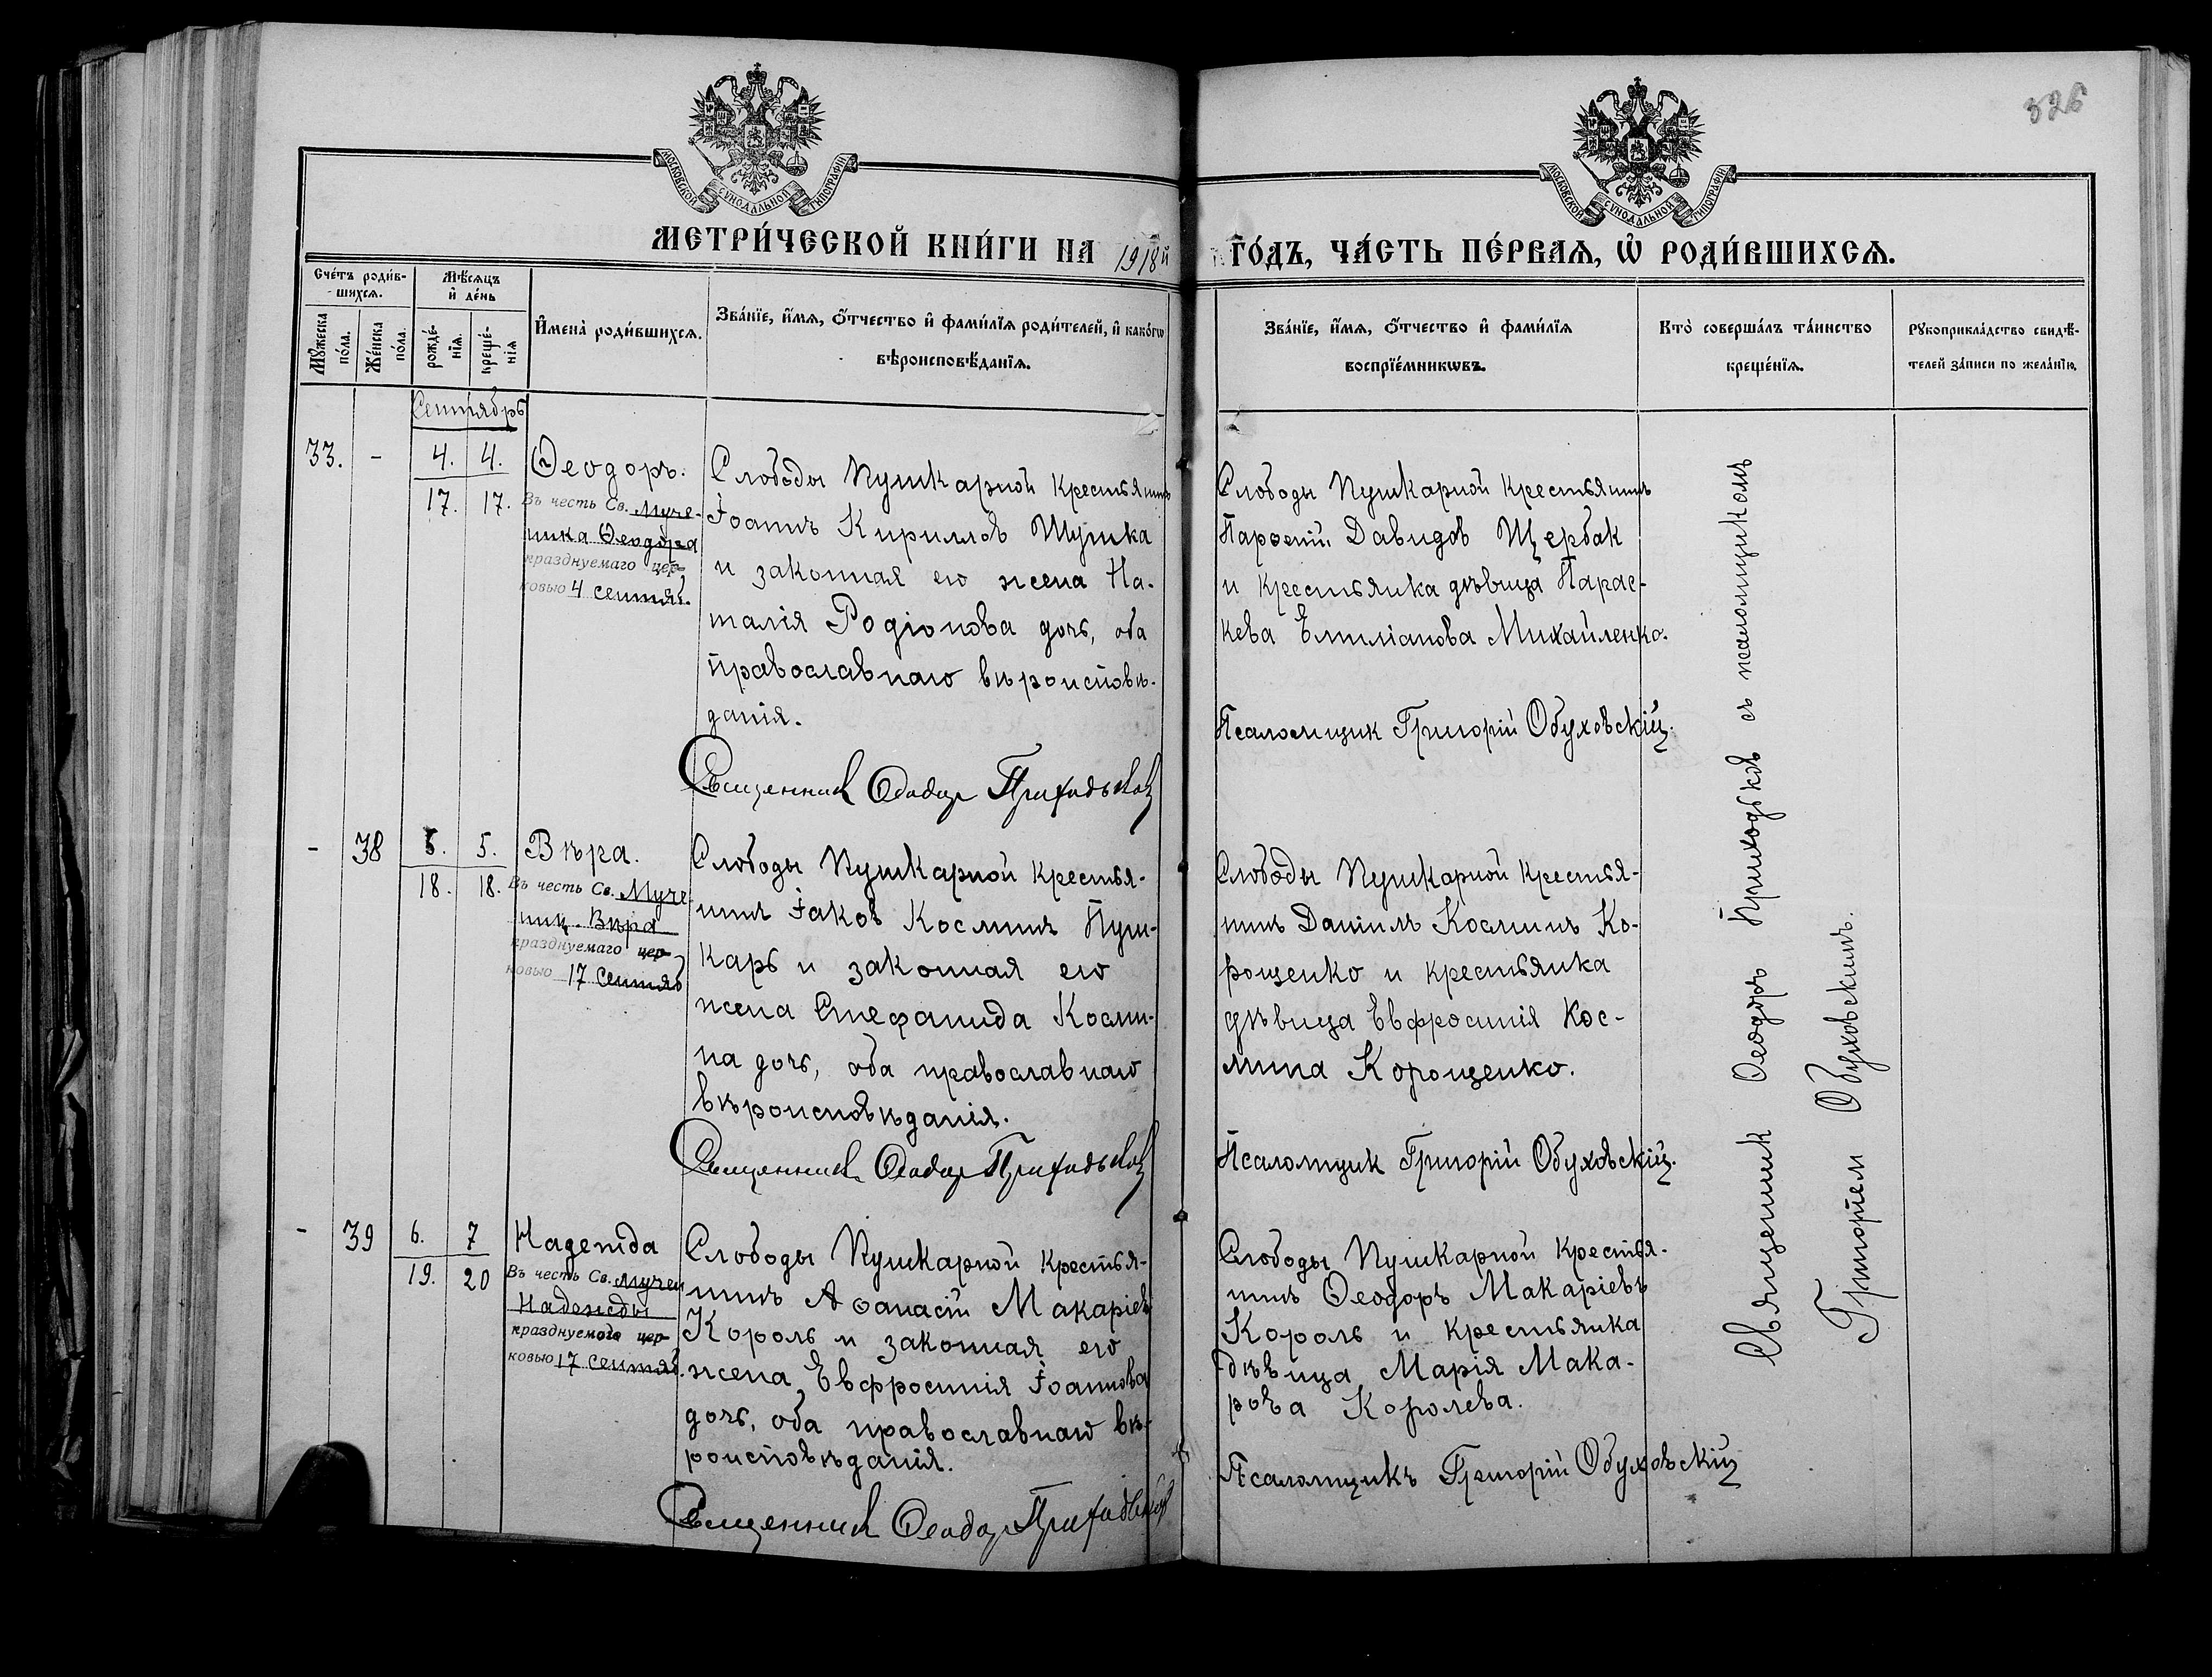 326
МОСКОВСКОЙ СѴНОДАЛЬНОЙ ТИПОГРАФІИ
МОСКОВСКОЙ СѴНОДАЛЬНОЙ ТИПОГРАФІИ
МЕТРИ́ЧЕСКОЙ КНИ́ГИ НА 1918й ГО́ДЪ, ЧА́СТЬ ПЕ́РВАѦ, Ѽ РОДИ́ВШИХСѦ.
Сче́тъ роди́в-
шихсѧ.
Мꙋ́жеска по́ла.
Же́нска по́ла.
Мѣ́сѧцъ и҆ де́нь
рожде́-нїѧ.
креще́-нїѧ
И҆мена̀ роди́вшихсѧ.
Зва́нїе, и҆́мѧ, ѻ҆́тчество и҆ фами́лїѧ роди́телей, и҆ како́гѡ
вѣроисповѣ́данїѧ.
Зва́нїе, и҆́мѧ, ѻ҆́тчество и҆ фами́лїѧ
воспрїе́мникѡвъ.
Кто̀ соверша́лъ та́инство
креще́нїѧ.
Рꙋкоприкла́дство свидѣ́-
телей за́писи по жела́нїю.
Сентябрь
33. - 4. 4.
17. 17.
Ѳеодоръ.
Въ честь Св. Муче-
ника Ѳеодора
празднуемаго цер-
ковью 4 сентяб.
Слободы Пушкарной крестьянинъ
Іоаннъ Кириллов Шушка
и законная его жена На-
талія Родіонова дочь, оба
православнаго вѣроисповѣ-
данія.
Священник Ѳеодор Приходьков
Слободы Пушкарной крестьянинъ
Давидов Щербак
и крестьянка дѣвица Парас-
кева Емиліанова Михайленко.
Псаломщик Григорій Обуховскій.
- 38 5. 5.
18. 18.
Вѣра.
Въ честь Св. Муче-
ниц. Вѣра
празднуемаго цер-
ковью 17 Сентяб
Слободы Пушкарной крестья-
нин Іаков Космин Пуш-
карь и законная его
жена Стефанида Косми-
на дочь, оба православнаго
вѣроисповѣданія.
Священник Ѳеодор Приходьков
Слободы Пушкарной крестья-
нинъ Даніилъ Косминъ Ко-
рощенко и крестьянка
дѣвица Евфросинія Кос-
мина Корощенко.
Псаломщик Григорій Обуховскій.
- 39 6. 7
19. 20
Надежда
Въ честь Св. Мучен
Надежды
празднуемаго цер-
ковью 17 Сентяб.
Слободы Пушкарной крестья-
нинъ Аѳанасій Макаріев
Король и законная его
жена Евфросинія Іоаннова
дочь, оба православнаго вѣ-
роисповѣданія.
Священник Ѳеодор Приходьков
Слободы Пушкарной крестья-
нинъ Ѳеодоръ Макаріевъ
Король и крестьянка
дѣвица Марія Мака-
рова Королева.
Псаломщикъ Григорій Обуховскій
Священник Ѳеодоръ Приходьков съ псаломщикомъ
Григоріем Обуховскимъ.